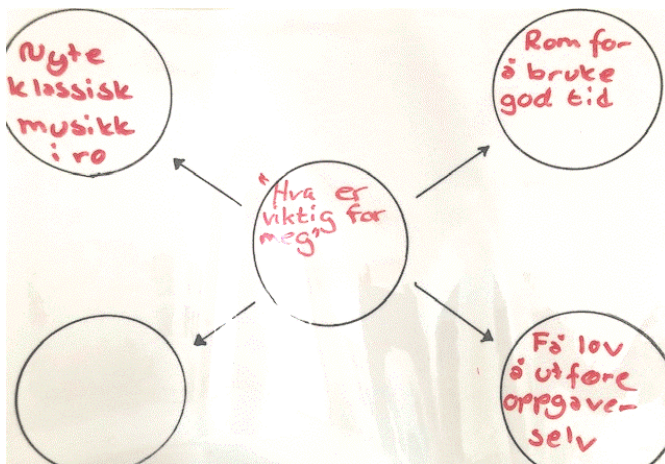 Nyte
klassisk
musikk
i ro
Rom for
å bruke
god tid
"Hva er
viktig for
meg"
Få lov
å utføre
oppgaver
selv